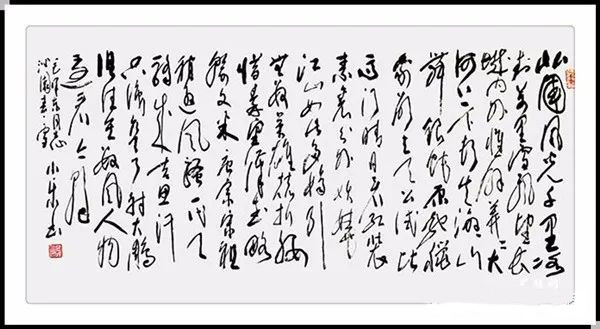 北國风光千里冰
封万里雪飘望长
城内外惟餘莽〻大
河上下顿失滔〻山
舞银蛇原驰蜡
象欲与天公试比
高须晴日看红装
素裹分外妖娆
江山如此多娇引
无数英雄竞折腰
惜秦皇汉武略
输文采唐宗宋祖
稍逊风骚一代天
骄成吉思汗
只识弯弓射大鹏
俱往矣数风流人物
还看今朝
毛泽东同志
沁园春雪